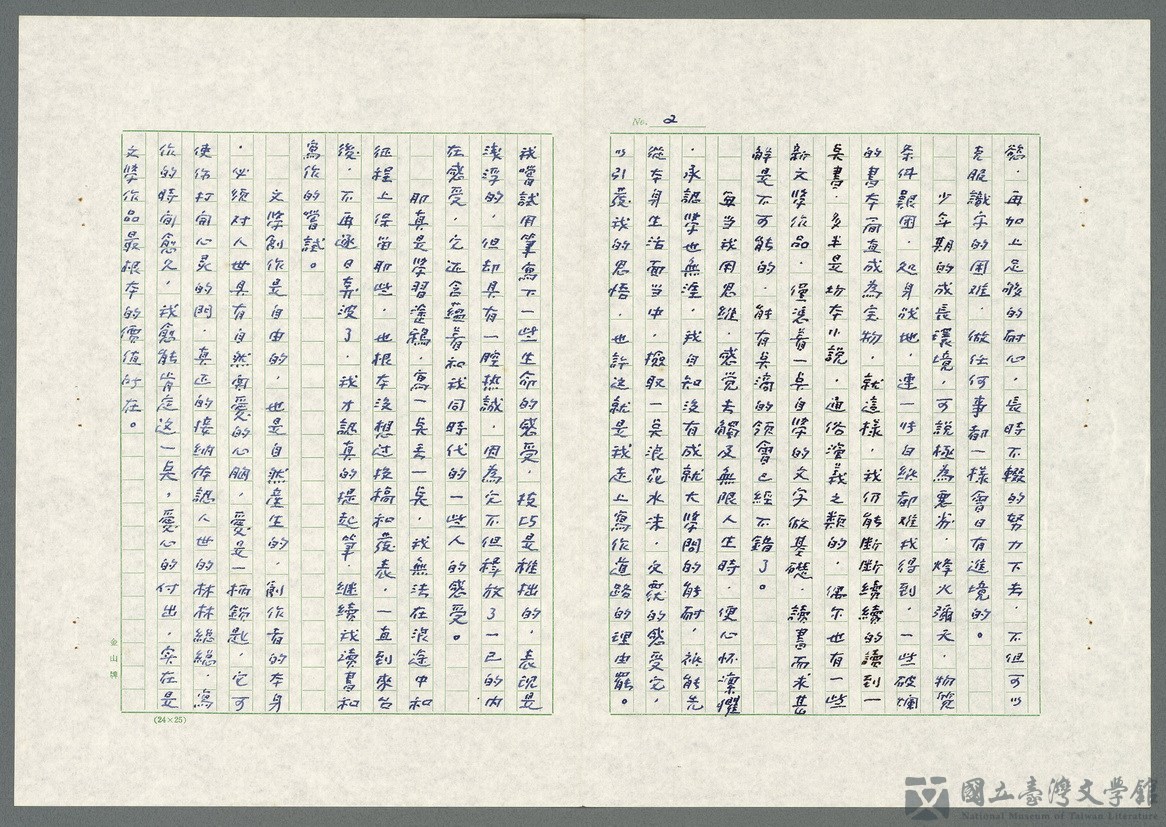 No. 2
慾，再加上足够的耐心，長時不輟的努力下去，不但可以
克服識字的困难，做任何事都一樣會日有進境的。
少年期的成長環境，可說極為惡劣，烽火瀰天，物質
条件艱困，処身战地，連一時自紙都难找得到，一些破爛
的書本简直成為宝物，就這樣，我仍能断断續續的讀到一
吳書，多半是坊本小說，通俗演義之類的，偶尔也有一些
新文學作品，僅憑着一吳自學的文字做基礎，讀書而求甚
解是不可能的，能有吳滴的領會已經不錯了。
每當我用思維，感觉去觸及無限人生時，便心怀凛懼
，承認學也無涯，我自知没有成就大學問的能耐，祇能先
從本身生活面当中，擷取一吳浪花水沫，反覆的感受它，
以引發我的思悟，也許这就是我走上寫作道路的理由罷。
我嚐試用筆寫下一些生命的感受，技巧是稚拙的，表現是
漂浮的，但却具有一腔热誠，因為它不但釋放了一己的内
在感受，它还含蘊着和我同時代的一些人的感受。
那真是學習塗鴉，寫一吳丟一吳，我無法在浪途中和
征程上保留那些，也根本没想过投稿和發表，一直到來台
後，不再逐日奔波了，我才認真的提起筆，继续我讀書和
寫作的嘗試。
文學創作是自由的，也是自然產生的，創作者的本身
，必须对人世具有自然寬愛的心胸，愛是一柄鎖匙，它可
使你打開心灵的門，真正的接納你認人世的林林總總，寫
作的時间愈久，我愈能肯定这一吳，愛心的付出，实在是
文學作品最根本的價值所在。
金山牌
(24×25)
國立臺灣文學館
National Museum of Taiwan Literature